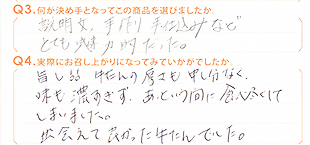 Q3.何が決め手となってこの商品を選びましたか
説明文、手作り手仕込みなど
とても魅力的だった。
Q4.実際にお召し上がりになってみていかがでしたか
旨し 牛たんの厚さも申し分なく、
味も濃すぎず、あっという間に食べ尽くして
しまいました。
出会えて良かった牛たんでした。